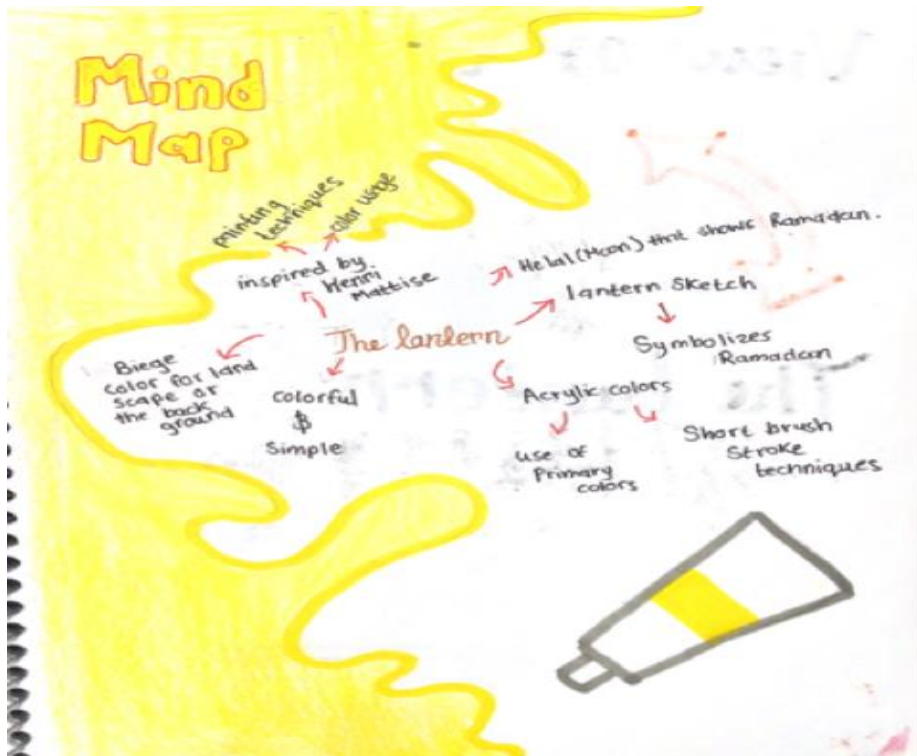 Mind
Map
painting
techniques
color usage
inspired by
Henri
Mattise
Helal (Moon) that shows Ramadan.
lantern Sketch
Symbolizes
Ramadan
The lantern
Biege
color for land
scape or
the back
ground
Colorful
&
Simple
Acrylic colors
use of
Primary
colors
Short brush
Stroke
techniques